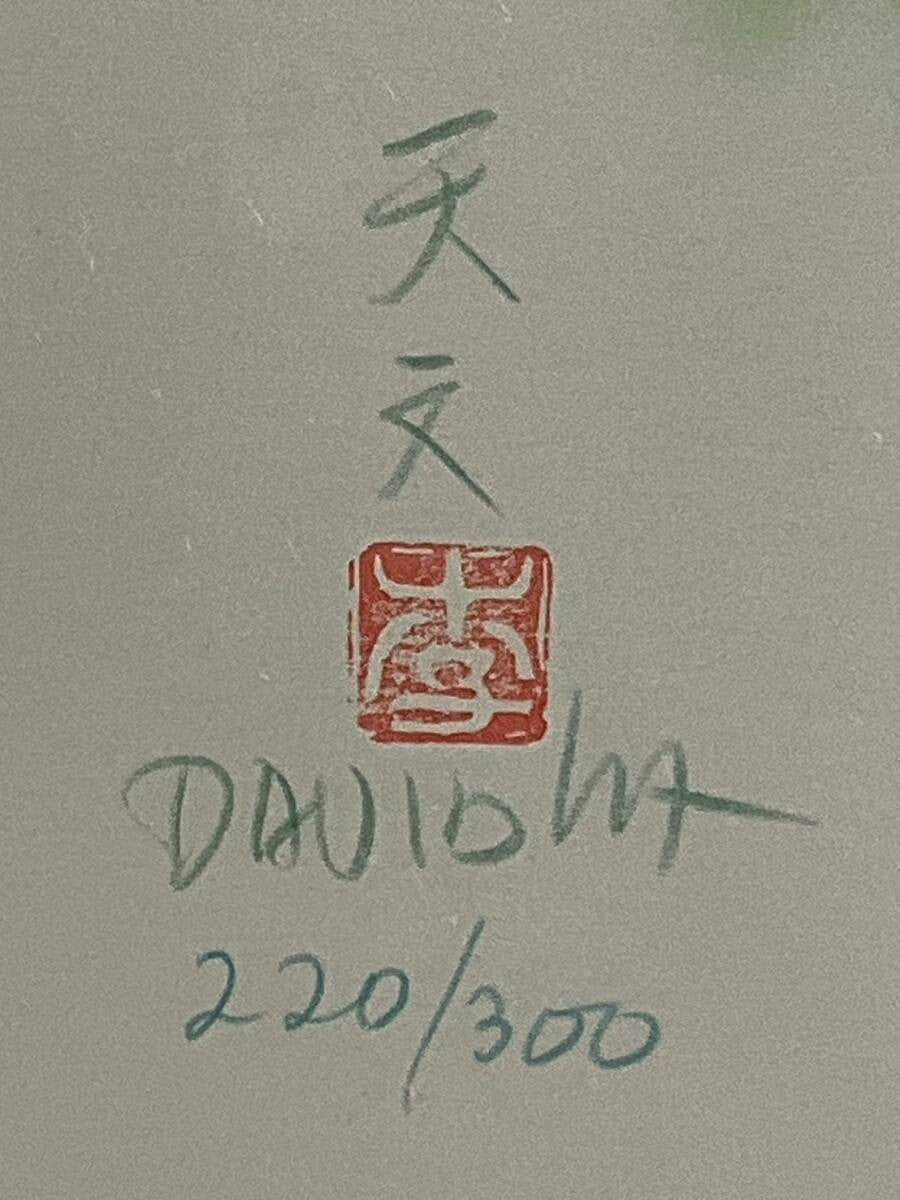 天
文
李
DAVID Lee
220/300